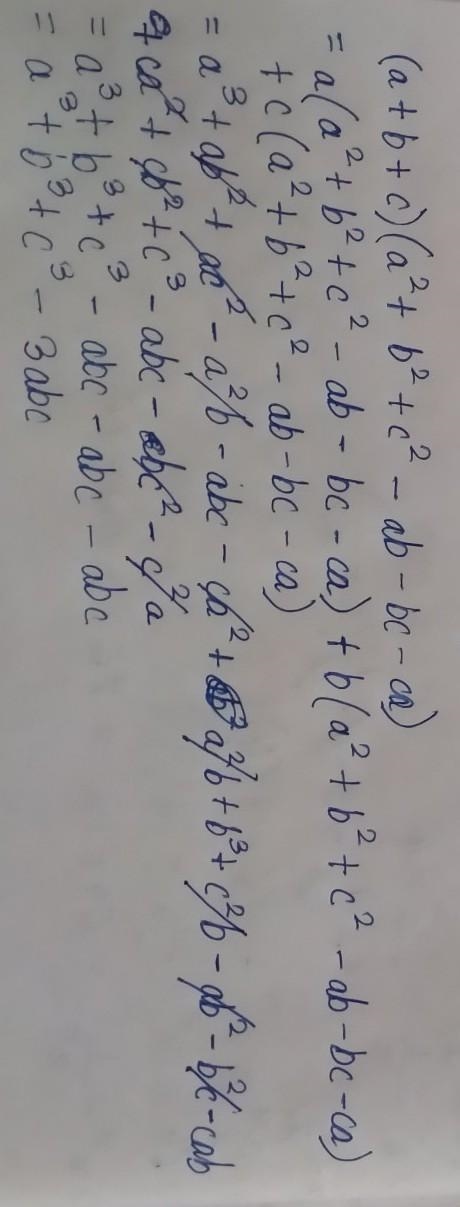 (a + b + c)(a² + b² + c² - ab - bc - ca)
= a(a² + b² + c² - ab - bc - ca) + b(a² + b² + c² - ab - bc - ca)
+ c(a² + b² + c² - ab - bc - ca)
= a³ + ab² + ac² - a²b - abc - ca² + a²b + b³ + c²b - ab² - b²c - cab
+ ca² + cb² + c³ - abc - bc² - c²a
= a³ + b³ + c³ - abc - abc - abc
= a³ + b³ + c³ - 3abc